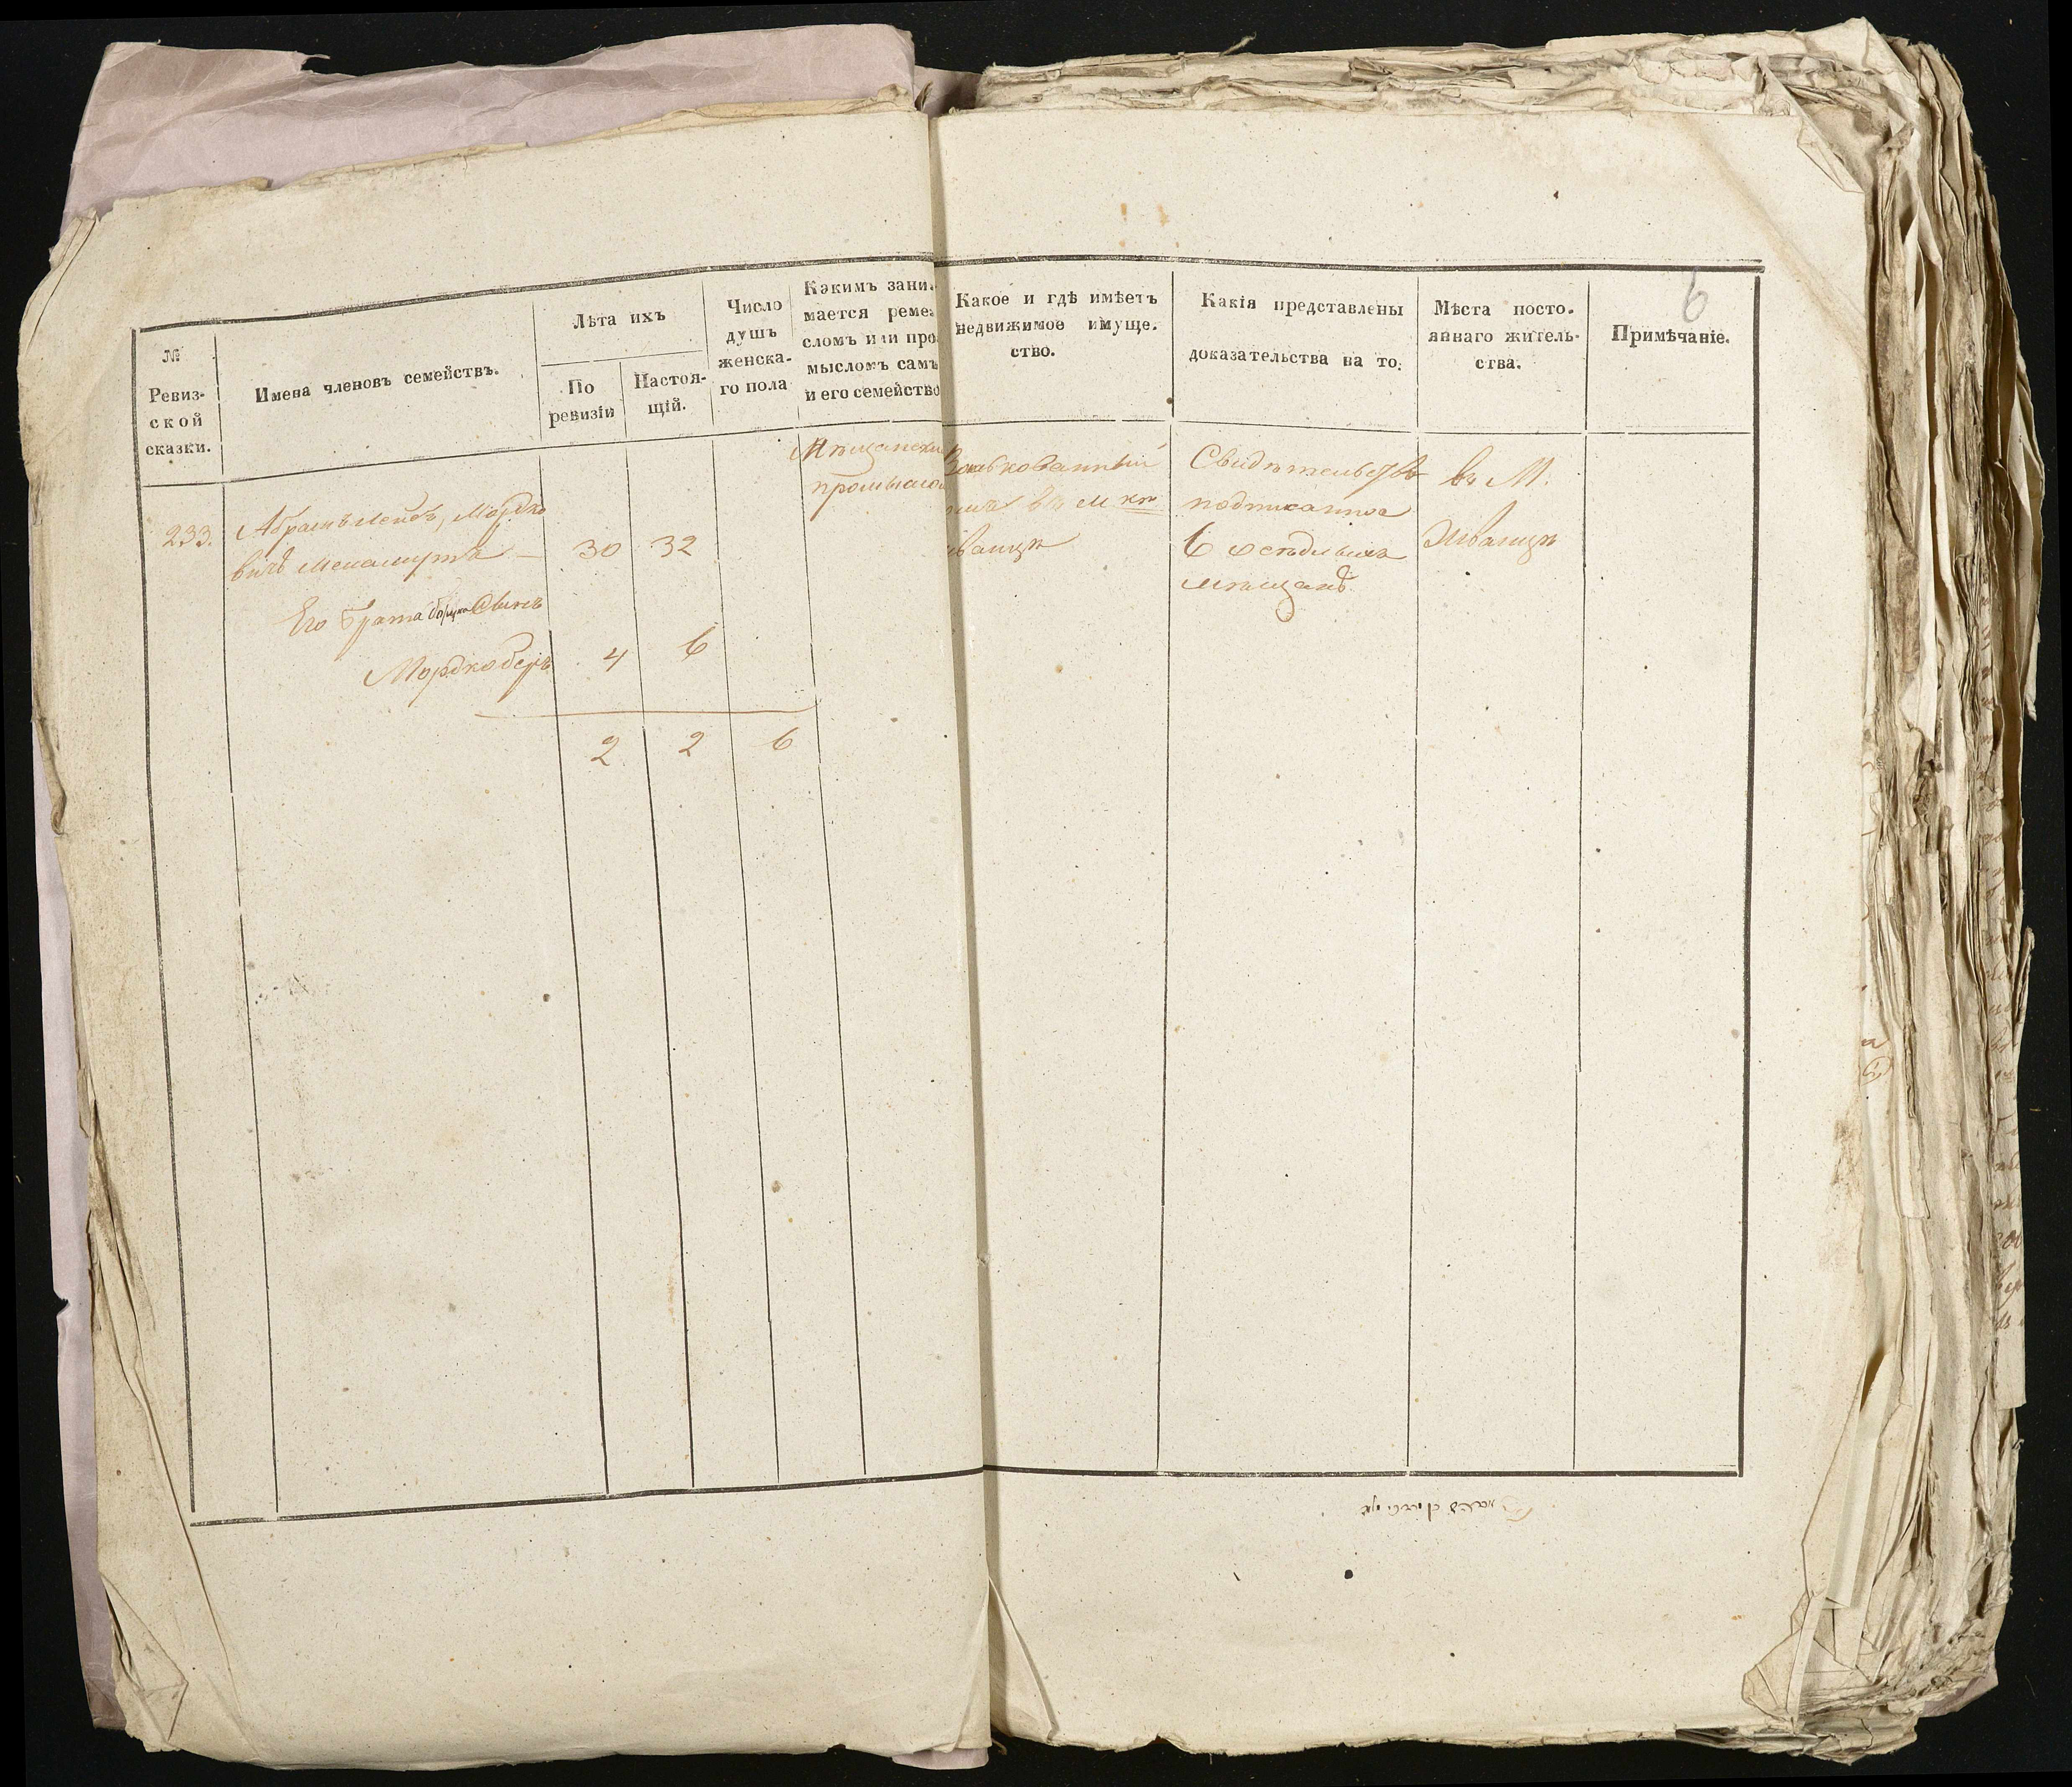 6
№
Ревиз-
ской
сказки.
Имена членовъ семействъ.
Лѣта ихъ
По
ревизіи
Настоя-
щій.
Число
душъ
женска-
го пола
Какимъ зани-
мается реме-
сломъ или про-
мысломъ самъ
и его семейство
Какое и гдѣ имѣетъ
недвижимое имуще-
ство.
Какія представлены
доказательства на то:
Мѣста посто-
яннаго житель-
ства.
Примѣчаніе.
233.
Абрамъ Лейбъ, Мордко
вичъ
30 32
Его брата Сынъ
Мордко беръ
4 6
2 2 6
Мѣщанскимъ
промысло
въ М
ванцѣ
Свидѣтельство
подписанное
6 осѣдлыхъ
мѣщанъ
въ М.
Жванцѣ